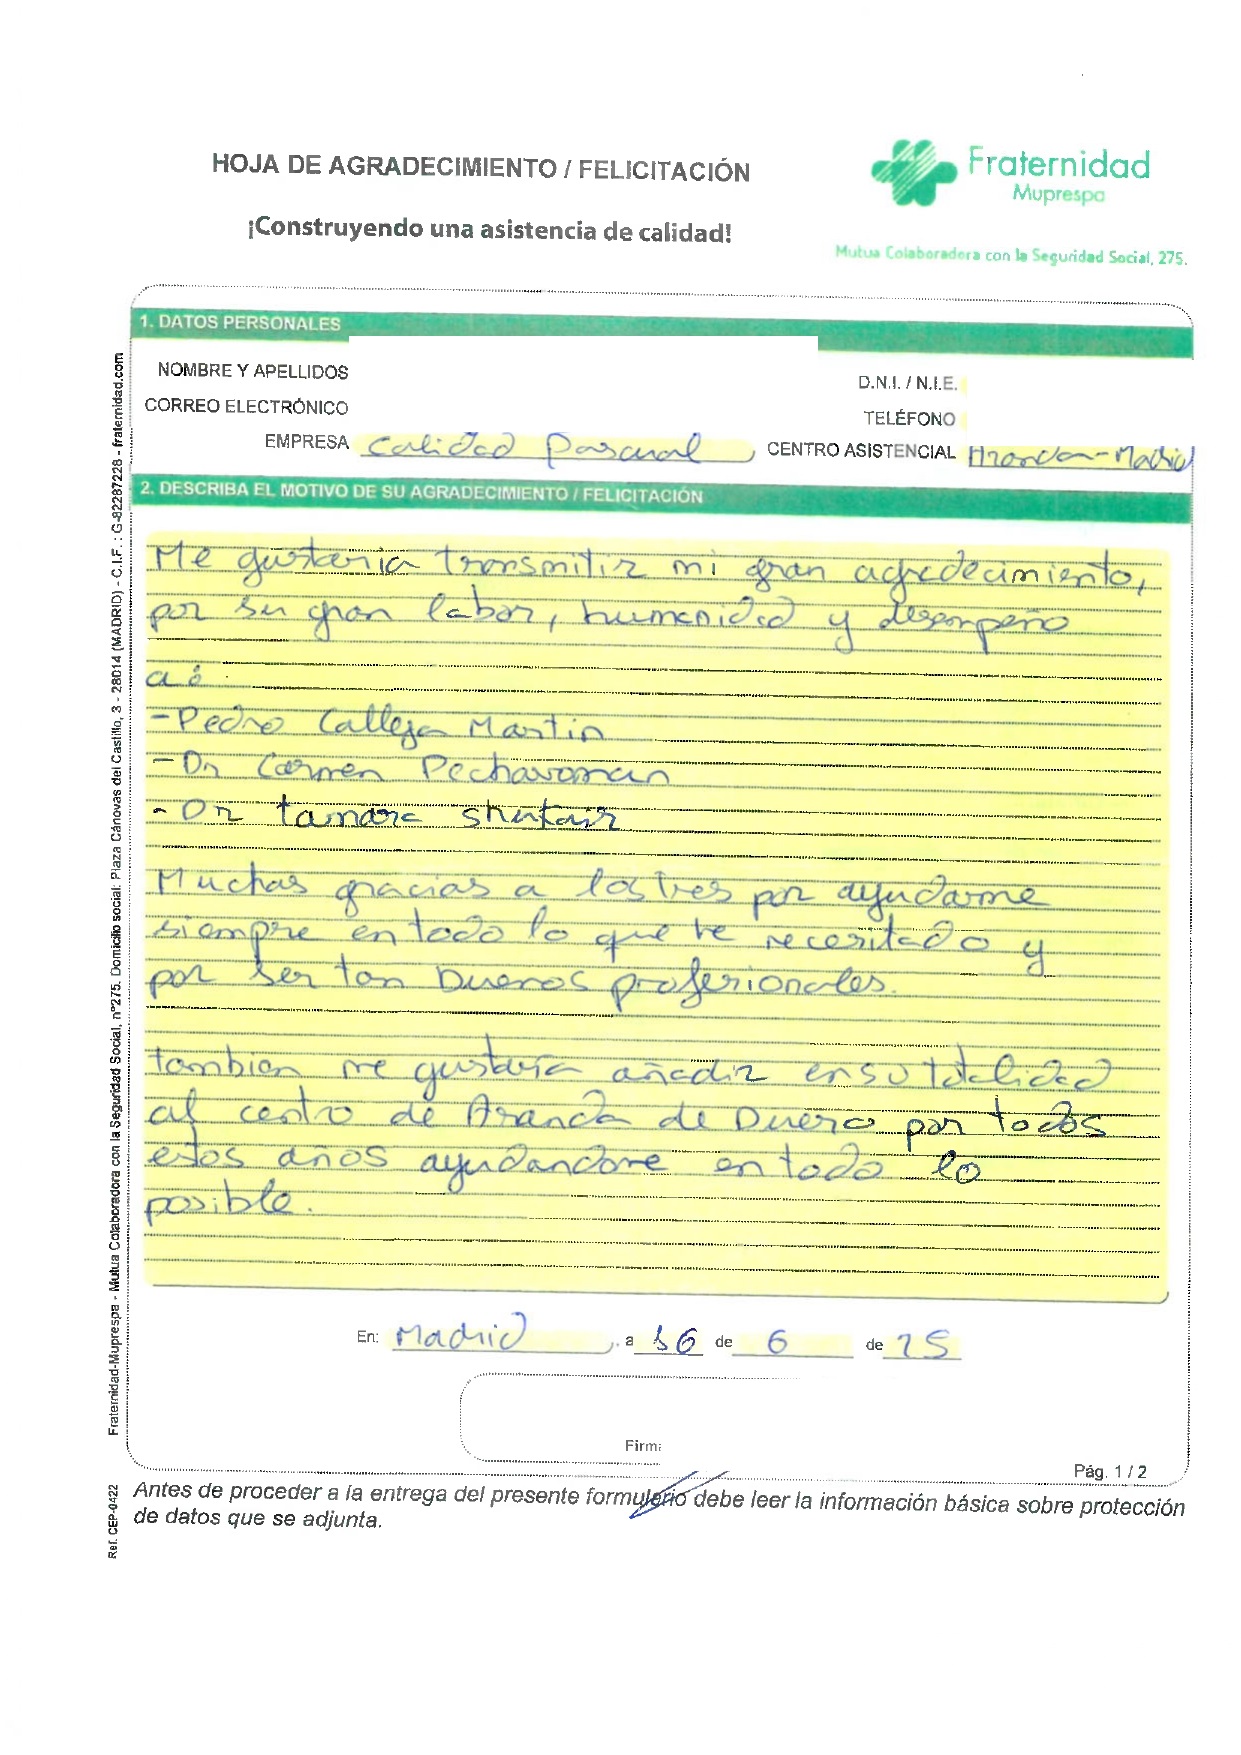 HOJA DE AGRADECIMIENTO / FELICITACIÓN
¡Construyendo una asistencia de calidad!
Fraternidad
Muprespa
Mutua Colaboradora con la Seguridad Social, 275.
1. DATOS PERSONALES
NOMBRE Y APELLIDOS
D.N.I. / N.I.E.
CORREO ELECTRÓNICO
TELÉFONO
EMPRESA Calidad Pascual
CENTRO ASISTENCIAL Aranda-Madrid
2. DESCRIBA EL MOTIVO DE SU AGRADECIMIENTO / FELICITACIÓN
Me gustaria transmitir mi gran agredecimiento,
por su gran labor, humanidad y desempeño
a:
-Pedro Calleja Martin
-Dr Carmen
-Dr tamara
Muchas gracias a los tres por ayudarme
siempre en todo lo que he necesitado y
por ser tan buenos profesionales.
tambien me gustaria añadir en su totalidad
al centro de Aranda de Duero por todos
estos años ayudandome en todo lo
posible.
En: Madrid, a 16 de 6 de 25
Firma
Pág. 1 / 2
Antes de proceder a la entrega del presente formulario debe leer la información básica sobre protección
de datos que se adjunta.
Fraternidad-Muprespa - Mutua Colaboradora con la Seguridad Social, nº275. Domicilio social: Plaza Cánovas del Castillo, 3 - 28014 (MADRID) - C.I.F. : G-82287228 - fraternidad.com
Ref. CEP-0422